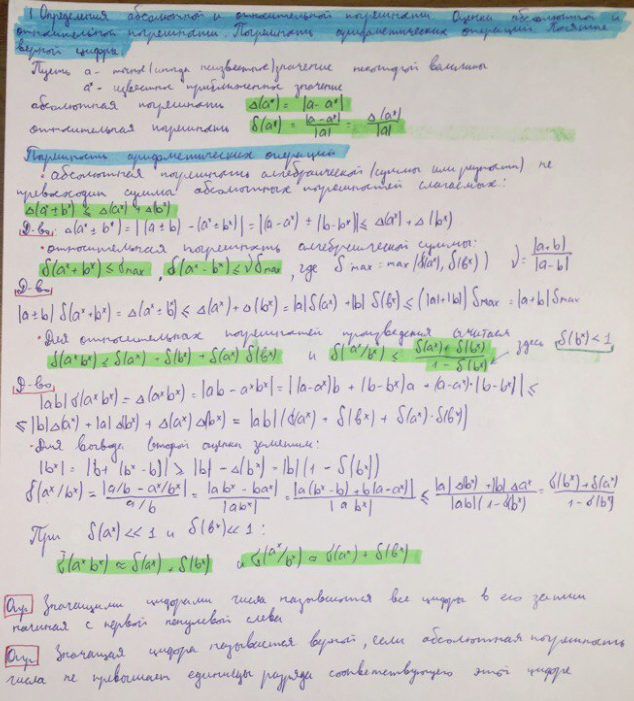 1 Определения абсолютной и относительной погрешности. Оценки абсолютной и
относительной погрешности. Погрешность арифметических операций. Понятие
верной цифры
Пусть a - точное (иногда неизвестное) значение некоторой величины
a* - известное приближенное значение
абсолютная погрешность Δ(a*) = |a - a*|
относительная погрешность δ(a*) = |a-a*|/|a| = Δ(a*)/|a|
Погрешность арифметических операций
• абсолютная погрешность алгебраической (суммы или разности) не
превосходит суммы абсолютных погрешностей слагаемых:
Δ(a* ± b*) ≤ Δ(a*) + Δ(b*)
Д-во: Δ(a* ± b*) = |(a ± b) - (a* ± b*)| = |(a-a*) ± (b-b*)| ≤ Δ(a*) + Δ(b*)
• относительная погрешность алгебраической суммы:
δ(a*+b*) ≤ δmax, δ(a*-b*) ≤ νδmax, где δmax = max(δ(a*), δ(b*)) ν = |a+b|/|a-b|
Д-во
|a±b| δ(a*±b*) = Δ(a*±b*) ≤ Δ(a*) + Δ(b*) = |a| δ(a*) + |b| δ(b*) ≤ (|a|+|b|) δmax = |a+b| δmax
• Для относительных погрешностей произведения
δ(a*b*) ≤ δ(a*) + δ(b*) + δ(a*) δ(b*) и δ(a*/b*) ≤ (δ(a*) + δ(b*))/(1 - δ(b*)) здесь δ(b*) < 1
Д-во
|ab| δ(a*b*) = Δ(a*b*) = |ab - a*b*| = |(a-a*)b + (b-b*)a + (a-a*)·(b-b*)| ≤
≤ |b| Δ(a*) + |a| Δ(b*) + Δ(a*) Δ(b*) = |ab| (δ(a*) + δ(b*) + δ(a*)·δ(b*))
• Для вывода второй оценки заметим:
|b*| = |b + (b*-b)| ≥ |b| - Δ(b*) = |b| (1 - δ(b*))
δ(a*/b*) = |a/b - a*/b*|/(a/b) = |ab* - ba*|/|ab*| = |a(b*-b) + b(a-a*)|/|ab*| ≤ (|a| Δ(b*) + |b| Δa*)/(|ab| (1 - δ(b*))) = (δ(b*) + δ(a*))/(1 - δ(b*))
При δ(a*) << 1 и δ(b*) << 1:
δ(a*b*) ≈ δ(a*) + δ(b*) и δ(a*/b*) ≈ δ(a*) + δ(b*)
Опр. Значащими цифрами числа называются все цифры в его записи
начиная с первой ненулевой слева
Опр. Значащая цифра называется верной, если абсолютная погрешность
числа не превышает единицы разряда соответствующего этой цифре